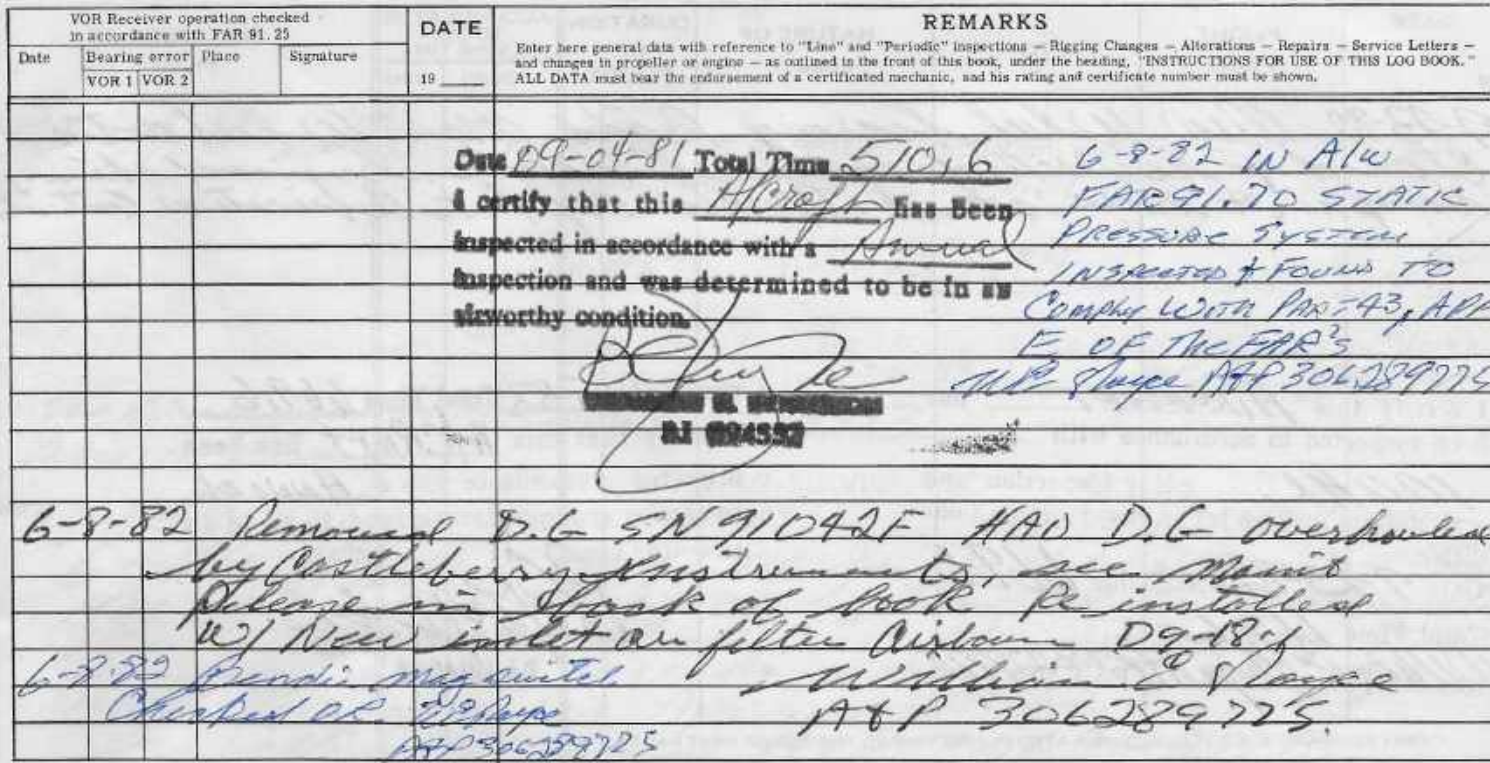 VOR Receiver operation checked
in accordance with FAR 91.25
Date Bearing error Place Signature
VOR 1 VOR 2
DATE
19
REMARKS
Enter here general data with reference to "Line" and "Periodic" inspections — Rigging Changes — Alterations — Repairs — Service Letters —
and changes in propeller or engine — as outlined in the front of this book, under the heading, "INSTRUCTIONS FOR USE OF THIS LOG BOOK."
ALL DATA must bear the endorsement of a certificated mechanic, and his rating and certificate number must be shown.
Date 09-04-81 Total Time 510.6
I certify that this A/Craft Has Been
inspected in accordance with a Annual
inspection and was determined to be in an
airworthy condition.
6-8-82 IN A/W
FAR 91.70 STATIC
PRESSURE SYSTEM
INSPECTED & FOUND TO
COMPLY WITH PART 43, APP
E OF THE FAR's
A&P 306289775
6-8-82 Removed D.G SN 91042F HAD D.G overhauled
by Castleberry Instruments, see Maint
Release in back of book Re installed
W/ New inlet air filter Airborn D9-18-1
William C
A&P 306289775.
6-8-82 mag switch
Checked OK.
A&P 306289775